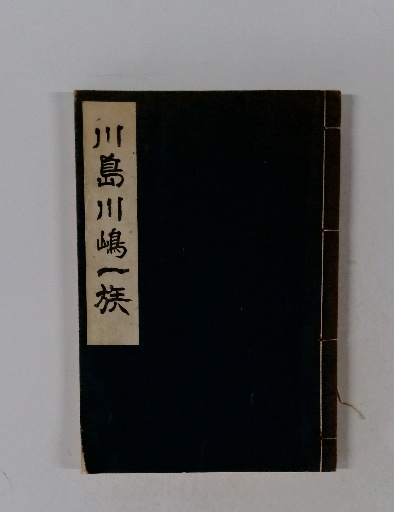 川島川嶋一族